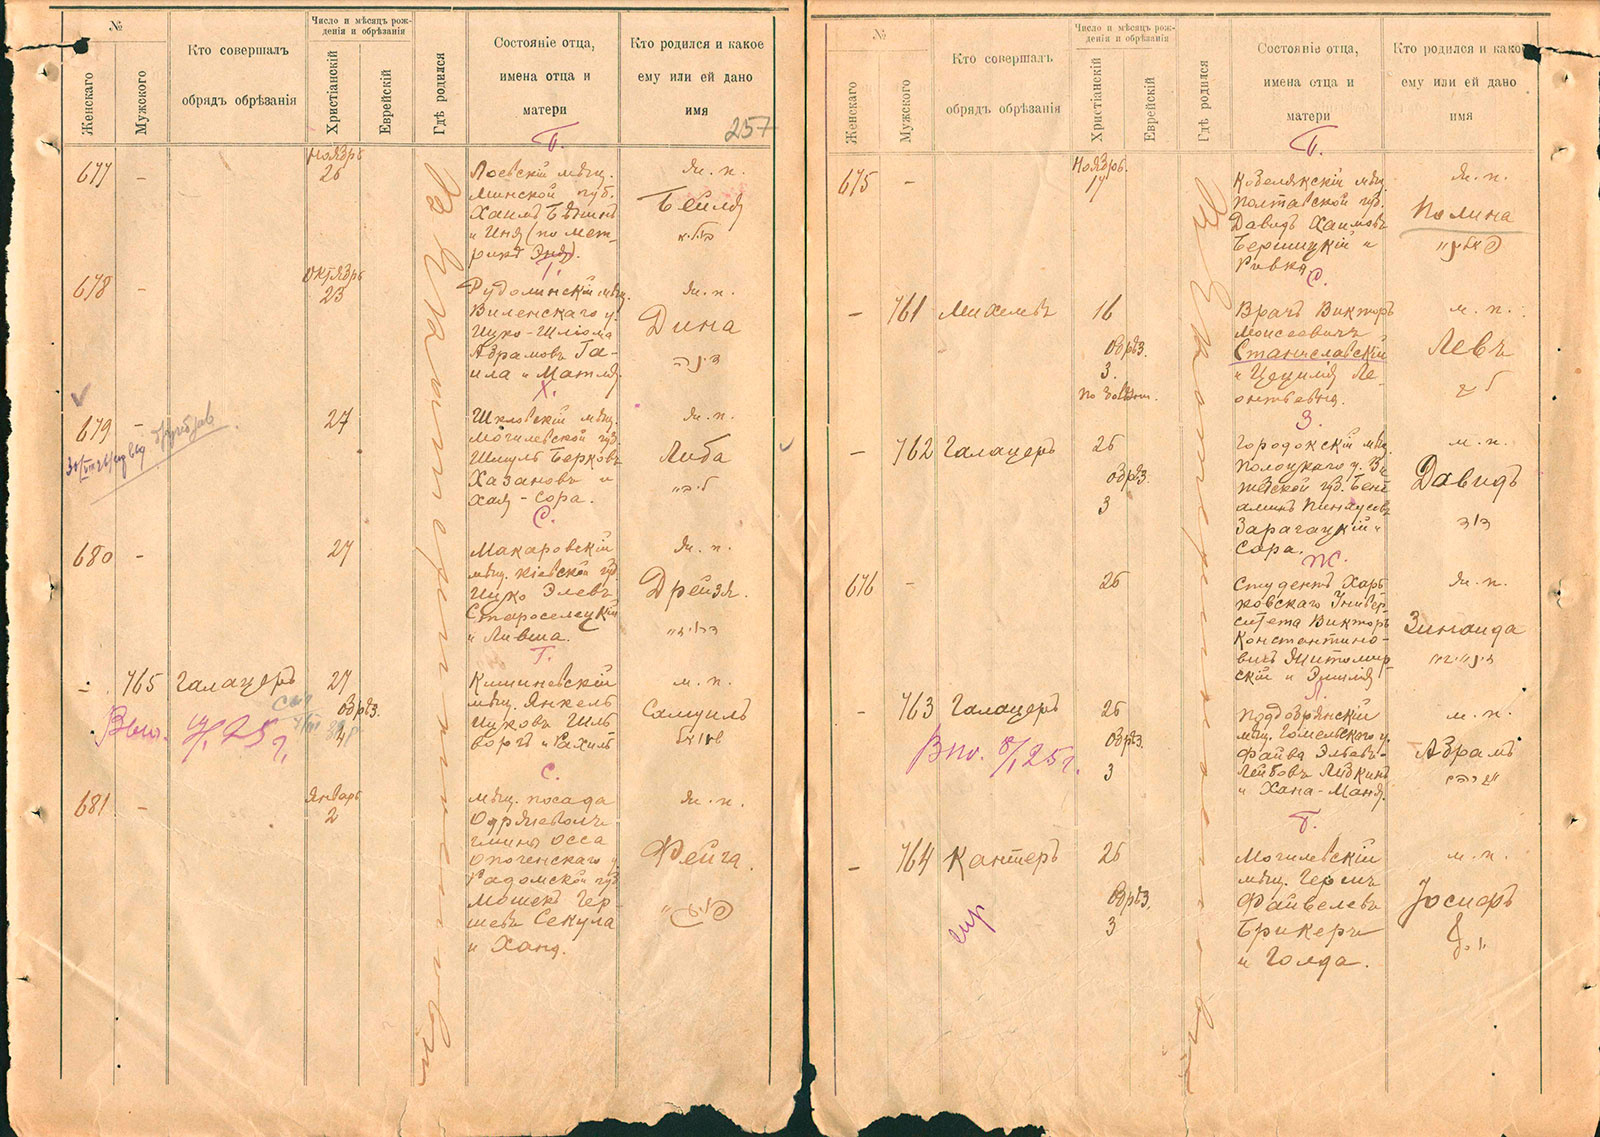 №
Женскаго
Мужского
Кто совершалъ
обрядъ обрѣзанія
Число и мѣсяцъ рож-
денія и обрѣзанія
Христіанскій
Еврейскій
Гдѣ родился
Состояніе отца,
имена отца и
матери
Кто родился и какое
ему или ей дано
имя
257
677
-
Ноябрь
26
Лоевскій мѣщ.
Минской губ.
Хаимъ
и Иня (по мет-
рикѣ
ж. п.
Бейля
678
-
Октябрь
23
Рудоминскій мѣщ.
Виленскаго у.
Ицко-Шліома
Абрамовъ Га-
ила и Матля.
ж. п.
Дина
דינה
Х.
679
-
27
Шкловскій мѣщ.
Могилевской губ.
Шмуль Берковъ
Хазановъ и
Хая-Сора.
ж. п.
Либа
С.
680
-
27
Макаровскій
мѣщ. Кіевской губ.
Ицко Элевъ
Староселецкій
и Ливша.
ж. п.
Дрейзя.
Г.
-
765
Галацеръ
27
обрѣз.
4
Кишиневскій
мѣщ. Янкель
Ицковъ Гиль
боргъ и Рахиль
м. п.
Самуилъ
שמואל
С.
681
-
Январь
2
мѣщ. посада
Одрживолъ
гмины Осса
Опоченскаго у.
Радомской губ.
Мошекъ Гер-
шевъ Секула
и Хана.
ж. п.
Фейга.
№
Женскаго
Мужского
Кто совершалъ
обрядъ обрѣзанія
Число и мѣсяцъ рож-
денія и обрѣзанія
Христіанскій
Еврейскій
Гдѣ родился
Состояніе отца,
имена отца и
матери
Кто родился и какое
ему или ей дано
имя
Б.
675
-
Ноябрь
17
Кобелякскій мѣщ.
Полтавской губ.
Давидъ Хаимовъ
Бершицкій и
Ривка
ж. п.
Полина
С.
-
761
Михелевъ
16
обрѣз.
3.
Врачъ Викторъ
Моисеевичъ
Станиславскій
и Цецилія Ле-
онтьевна.
м. п.
Левъ
З.
-
762
Галацеръ
26
обрѣз.
3
Городокскій мѣщ.
Полоцкаго у. Ви-
тебской губ. Бені
аминъ Пинхусовъ
Зарагацкій и
Сора.
м. п.
Давидъ
דוד
Ж.
676
-
26
Студентъ Харь
ковскаго Универ-
ситета Викторъ
Константино-
вичъ Житомир-
скій и Эмилія
ж. п.
Зинаида
Л.
-
763
Галацеръ
26
обрѣз.
3
Поддобрянскій
мѣщ. Гомельскаго у.
Файва Эльевъ-
Лейбовъ Либкинъ
и Хана-Маня.
м. п.
Абрамъ
Б.
-
764
Кантеръ
26
обрѣз.
3
Могилевскій
мѣщ. Герцъ
Файвелевъ
Брикеръ
и Голда.
м. п.
Іосифъ